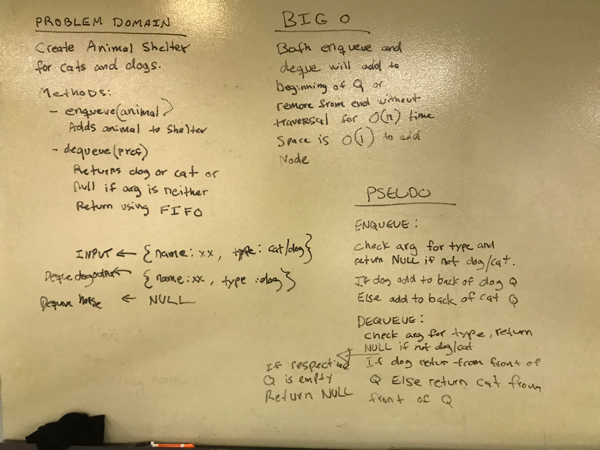 PROBLEM DOMAIN
Create Animal Shelter
for cats and dogs.
Methods:
- enqueue(animal)
Adds animal to shelter
- dequeue(pref)
Returns dog or cat or
null if arg is neither
Return using FIFO
INPUT ← {name: xx, type: cat/dog}
{name: xx, type: dog}
← NULL
BIG O
Both enqueue and
deque will add to
beginning of Q or
remove from end without
traversal for O(n) time
Space is O(1) to add
Node
PSEUDO
ENQUEUE:
Check arg for type and
return NULL if not dog/cat.
If dog add to back of dog Q
Else add to back of cat Q
DEQUEUE:
Check arg for type, return
NULL if not dog/cat
If dog retur from front of
Q Else return cat from
front of Q
If respective
Q is empty
Return NULL